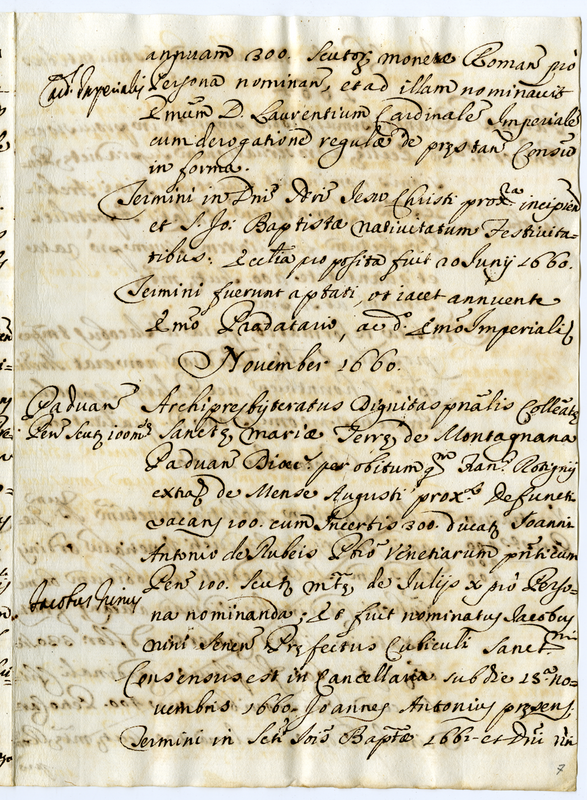 annuam 300. scutor̃ monetæ Roman̄ pro
Card. Imperialis
Persona nominan̄, et ad illam nominavit
Emum̃ D. Laurentium Cardinale Imperiale
cum derogatione regulæ de præstan̄ Consen̄
in forma.
Termini in Dn̄i Nr̄i Jesu Christi prox.ª incipien̄
et S. Jo: Baptistæ nativitatum Festivita-
tibus. Ecclia proposita fuit 20 Junij 1660.
Termini fuerunt aptati, ut iacet annuente
Emo Prodatario, ac d.º Emo Imperiali
November 1660.
Paduan̄
Archipresbyteratus Dignitas pn̄alis Colleatę
Pen̄ scutę 100 mtę
Sanctę Mariæ Terrę de Montagnana
Paduan̄ Dioec. per obitum qm̄ Fran.
extra de Mense Augusti prox.º defuncti
vacans 100. cum Incertis 300. ducatę Joanni
Antonio de Rubeis Pbrō Venetiarum
Pen̄ 100. scutę mtę, de Julijs x pro Perso-
Jacobus Ninus
na nominanda; Et fuit nominatus Jacobus
Nini Senen̄ Prefectus Cubiculi Sanctmi
Consensus est in Cancellaria sub die 13.ª No-
vembris 1660. Joannes Antonius præsens
Termini in Scti Jois Baptæ 1661 et Dn̄i
7